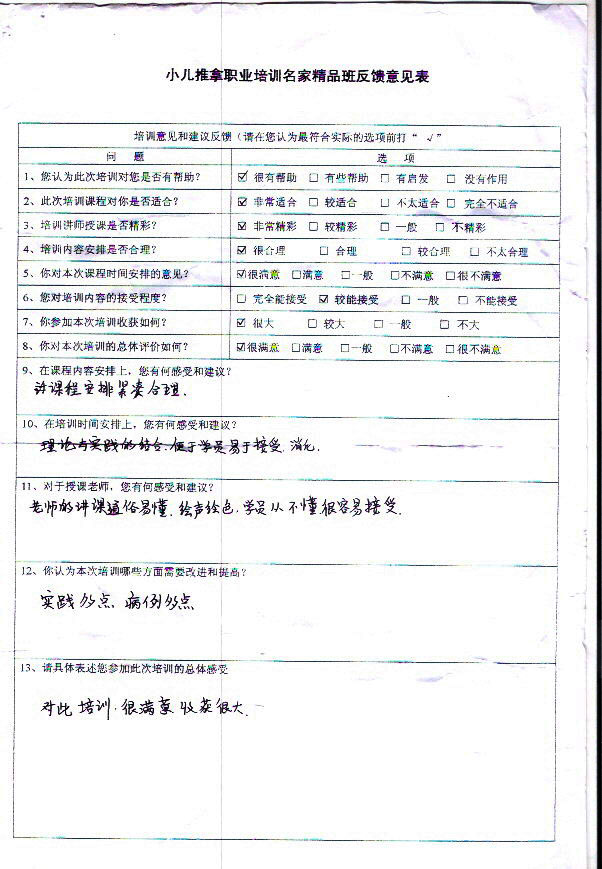 小儿推拿职业培训名家精品班反馈意见表
培训意见和建议反馈（请在您认为最符合实际的选项前打“ √”
问 题 选 项
1、您认为此次培训对您是否有帮助？ ☑ 很有帮助 □ 有些帮助 □ 有启发 □ 没有作用
2、此次培训课程对你是否适合？ ☑ 非常适合 □ 较适合 □ 不太适合 □ 完全不适合
3、培训讲师授课是否精彩？ ☑ 非常精彩 □ 较精彩 □ 一般 □ 不精彩
4、培训内容安排是否合理？ ☑ 很合理 □ 合理 □ 较合理 □ 不太合理
5、你对本次课程时间安排的意见？ ☑很满意 □满意 □一般 □不满意 □很不满意
6、您对培训内容的接受程度？ □ 完全能接受 ☑ 较能接受 □ 一般 □ 不能接受
7、你参加本次培训收获如何？ ☑ 很大 □ 较大 □ 一般 □ 不大
8、你对本次培训的总体评价如何？ ☑很满意 □满意 □一般 □不满意 □很不满意
9、在课程内容安排上，您有何感受和建议？
讲课程安排紧凑合理.
10、在培训时间安排上，您有何感受和建议？
理论与实践的结合.便于学员易于接受.消化.
11、对于授课老师，您有何感受和建议？
老师的讲课通俗易懂.绘声绘色.学员从不懂很容易接受.
12、你认为本次培训哪些方面需要改进和提高？
实践多点.病例多点
13、请具体表述您参加此次培训的总体感受
对此培训.很满意 收获很大.